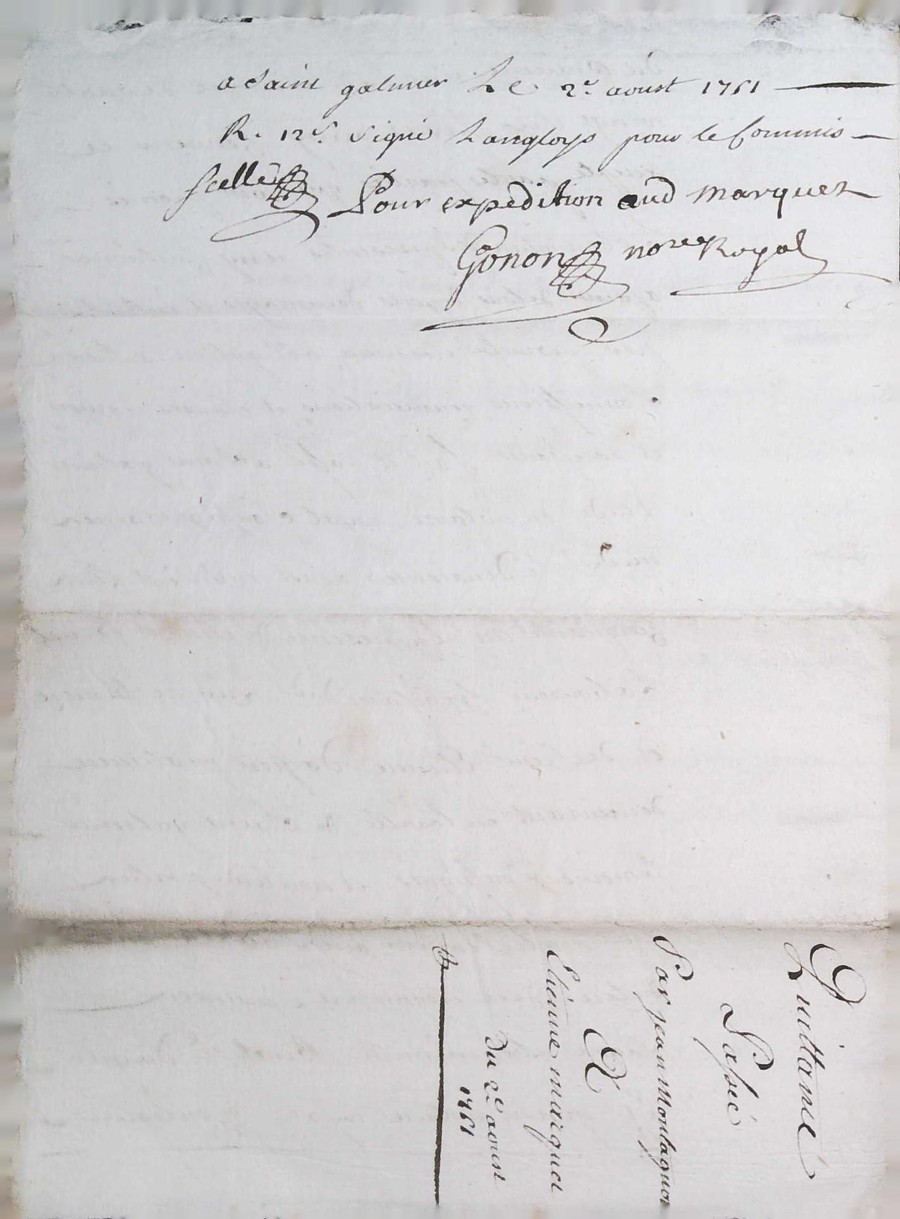 a Saint galmier Le 2e aoust 1761
R. 12s. Signé Langloys pour le commis
scellé Pour expedition aud Marquet
Gonon nore Royal
Quittance
Passé
Par jean Montagnon
A
Etienne marquet
du 2e aoust
1761